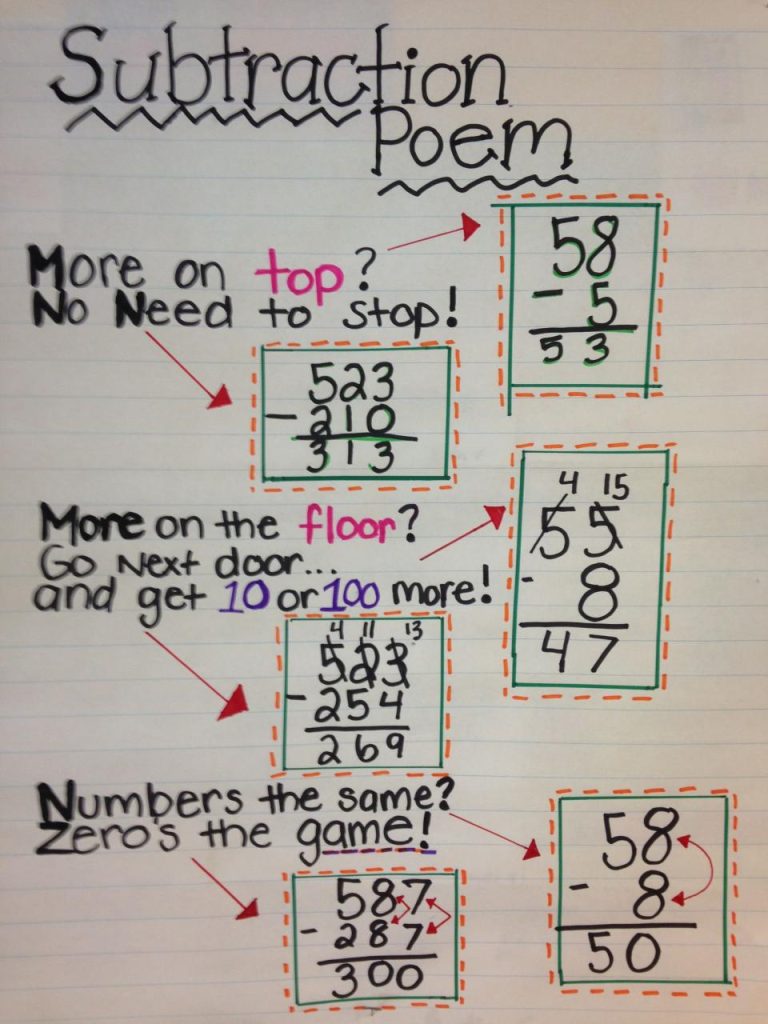 Subtraction
Poem
More on top?
No Need to stop!
58
- 5
53
523
- 210
313
More on the floor?
Go Next door...
and get 10 or 100 more!
4 15
55
- 8
47
4 11 13
523
- 254
269
Numbers the same?
Zero's the game!
58
- 8
50
587
- 287
300